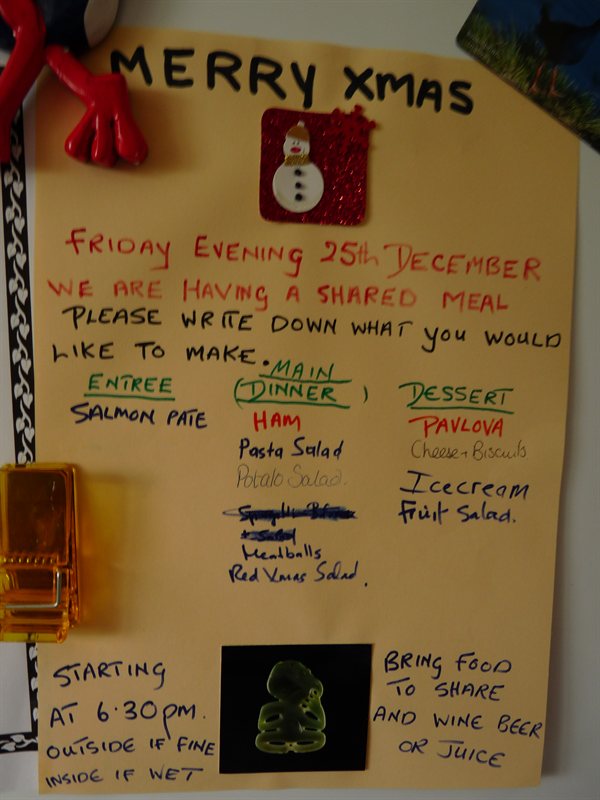 MERRY XMAS
FRIDAY EVENING 25th DECEMBER
WE ARE HAVING A SHARED MEAL
PLEASE WRITE DOWN WHAT YOU WOULD
LIKE TO MAKE.
ENTREE
SALMON PATE
MAIN
(DINNER)
HAM
Pasta Salad
Potato Salad.
Meatballs
Red Xmas Salad.
DESSERT
PAVLOVA
Cheese + Biscuits
Icecream
Fruit Salad.
STARTING
AT 6.30pm.
OUTSIDE IF FINE
INSIDE IF WET
BRING FOOD
TO SHARE
AND WINE BEER
OR JUICE